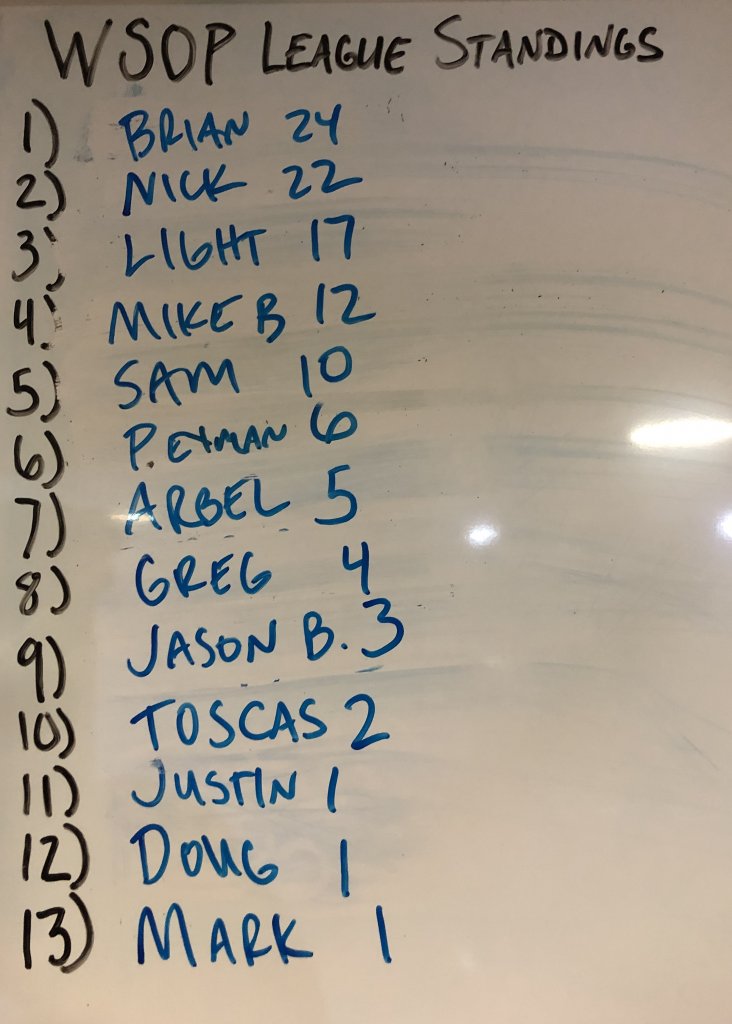 WSOP LEAGUE STANDINGS
1) BRIAN 24
2) NICK 22
3) LIGHT 17
4) MIKE B 12
5) SAM 10
6) P. EYMAN 6
7) ARBEL 5
8) GREG 4
9) JASON B. 3
10) TOSCAS 2
11) JUSTIN 1
12) DOUG 1
13) MARK 1